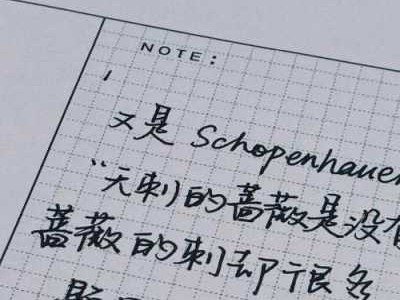 NOTE:
又是 Schopenhauer
“无刺的蔷薇是没有
蔷薇的刺却很多